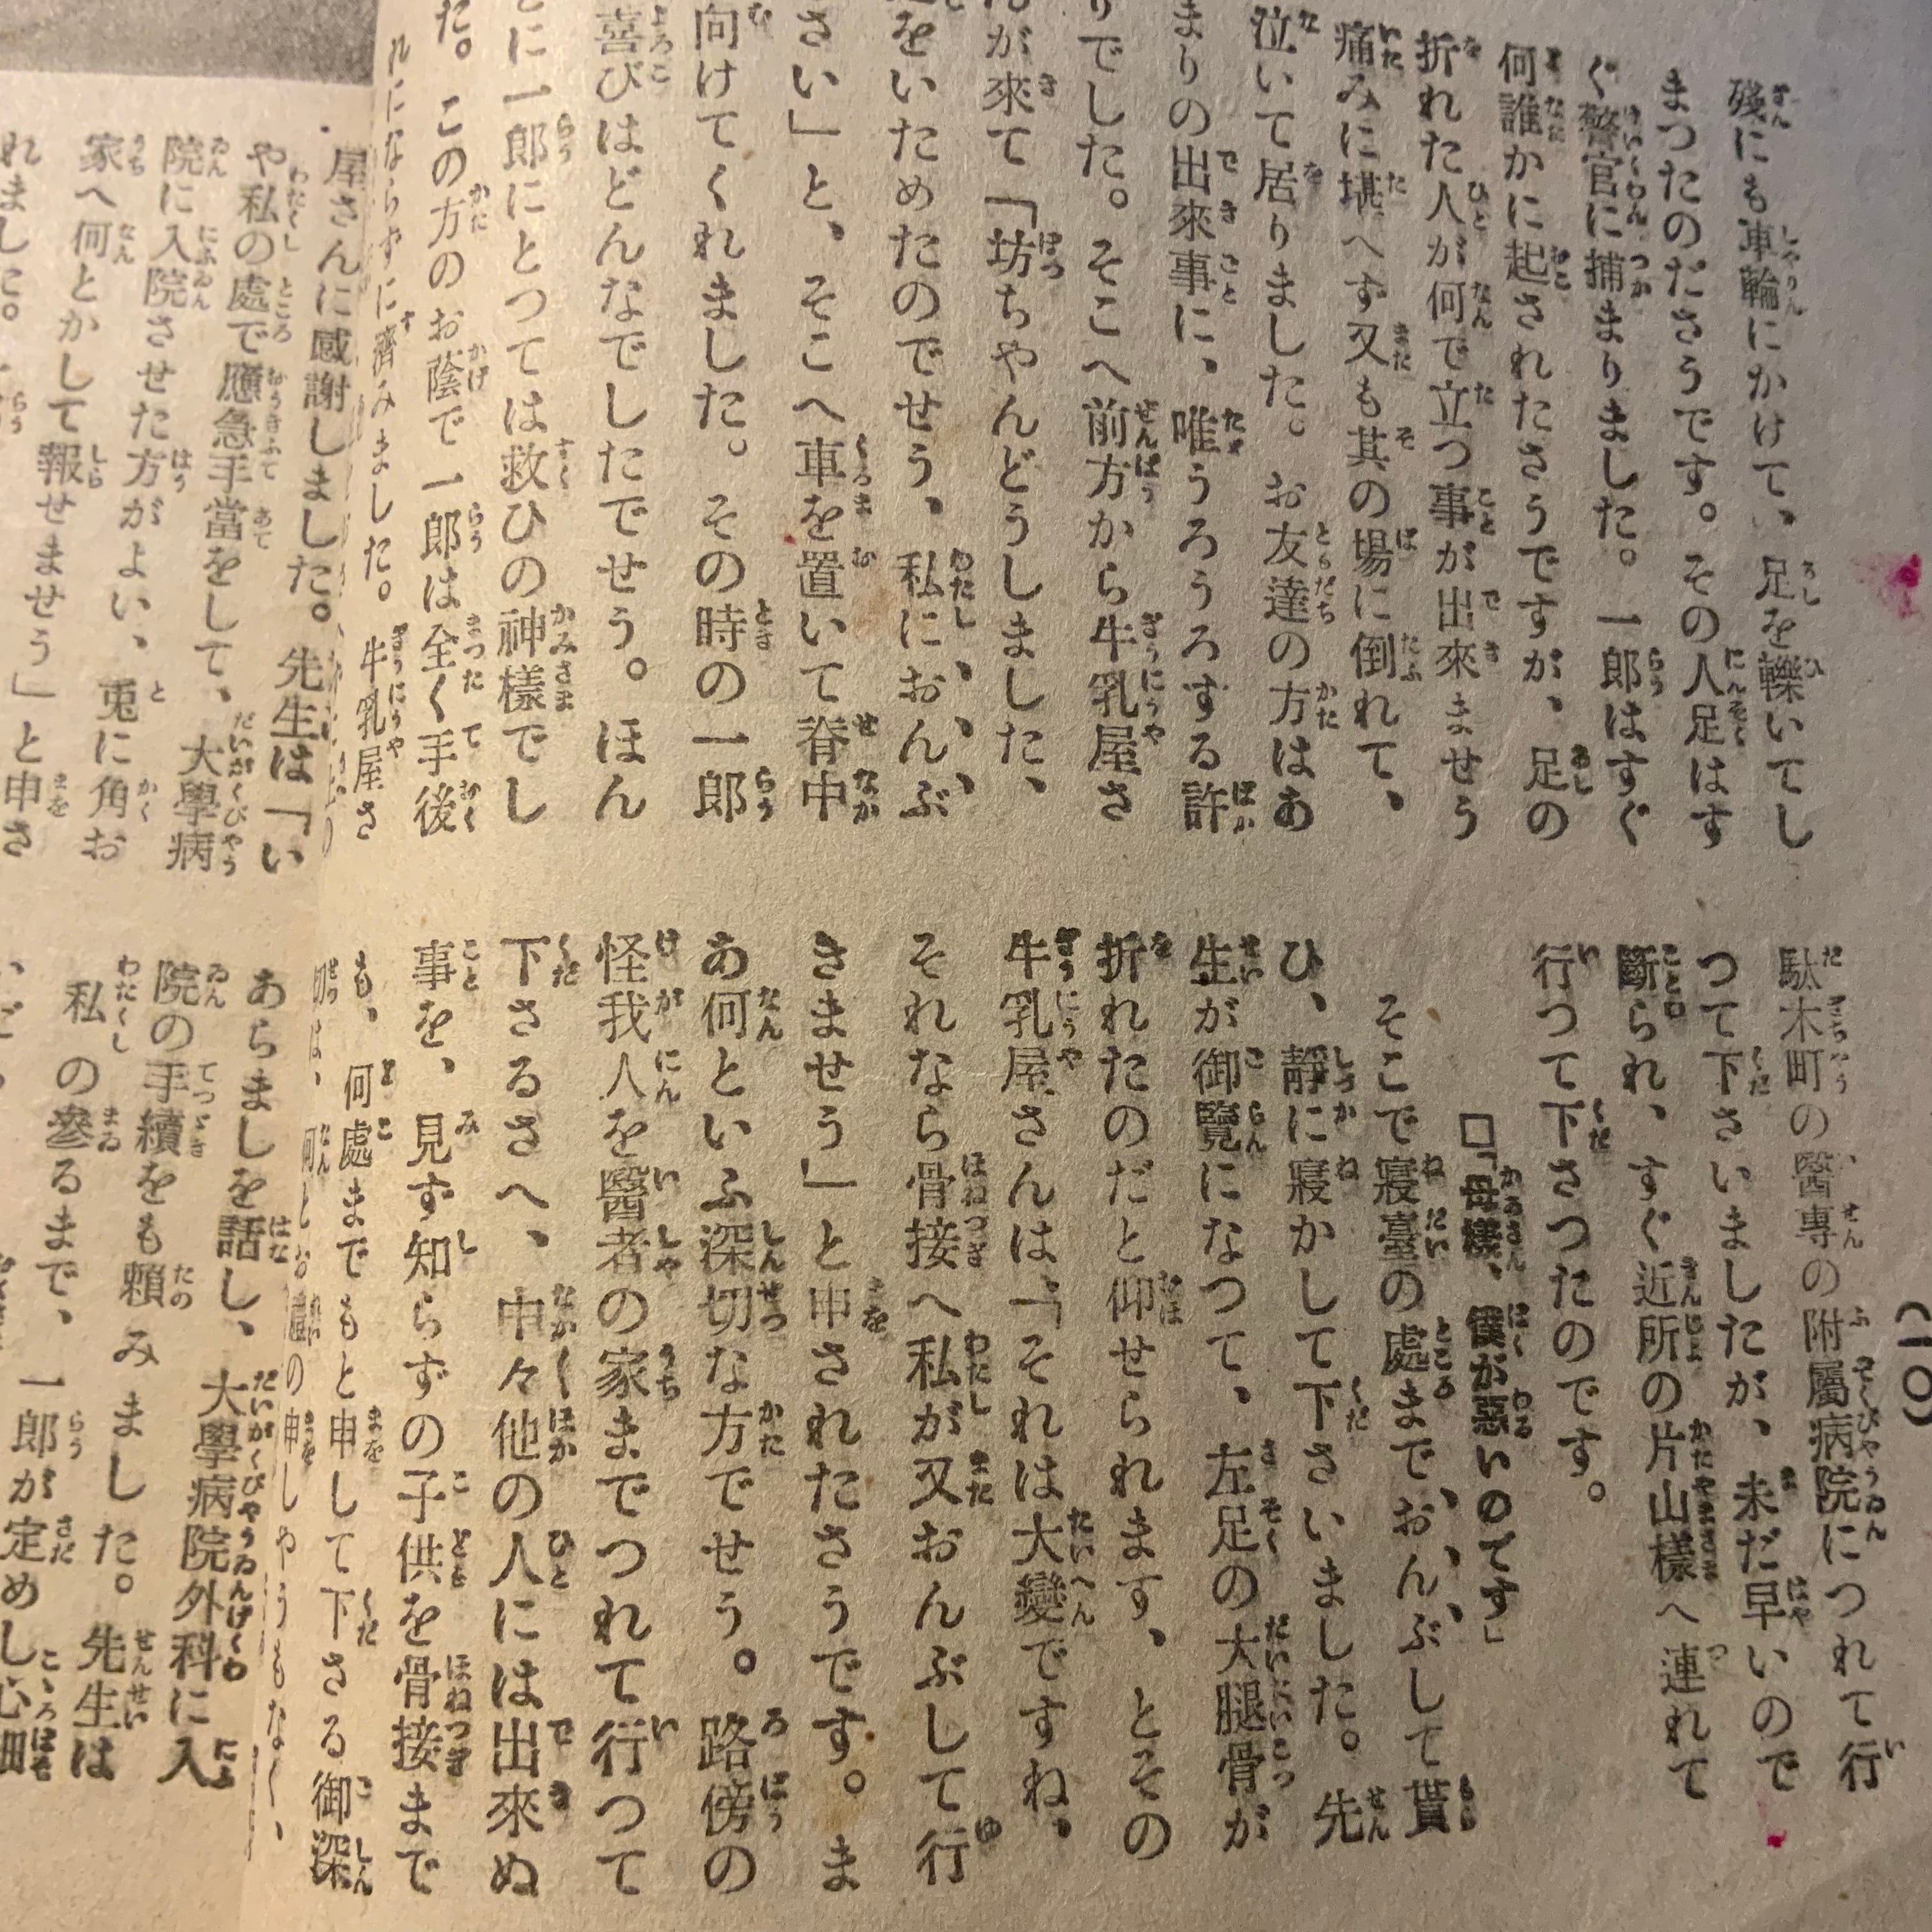 (一〇)
殘にも車輪にかけて、足を轢いてし
まつたのださうです。その人足はす
ぐ警官に捕まりました。一郎はすぐ
何誰かに起されたさうですが、足の
折れた人が何で立つ事が出來ませう
痛みに堪へず又も其の場に倒れて、
泣いて居りました。お友達の方はあ
まりの出來事に、唯うろうろする許
りでした。そこへ前方から牛乳屋さ
んが來て「坊ちやんどうしました、
をいためたのでせう、私におんぶ
さい」と、そこへ車を置いて脊中
向けてくれました。その時の一郎
喜びはどんなでしたでせう。ほん
に一郎にとつては救ひの神樣でし
た。この方のお陰で一郎は全く手後
れにならずに濟みました。牛乳屋さ
屋さんに感謝しました。先生は「い
や私の處で應急手當をして、大學病
院に入院させた方がよい、兎に角お
家へ何とかして報せませう」と申さ
れました。
駄木町の醫專の附屬病院につれて行
つて下さいましたが、未だ早いので
斷られ、すぐ近所の片山樣へ連れて
行つて下さつたのです。
□「母樣、僕が惡いのです」
そこで寢臺の處まで、おんぶして貰
ひ、靜に寢かして下さいました。先
生が御覽になつて、左足の大腿骨が
折れたのだと仰せられます、とその
牛乳屋さんは、「それは大變ですね、
それなら骨接へ私が又おんぶして行
きませう」と申されたさうです。ま
あ何といふ深切な方でせう。路傍の
怪我人を醫者の家までつれて行つて
下さるさへ、中々他の人には出來ぬ
事を、見ず知らずの子供を骨接まで
も、何處までもと申して下さる御深
切は、何とお禮の申しやうもなく、
あらましを話し、大學病院外科に入
院の手續をも賴みました。先生は
私の參るまで、一郎が定めし心細